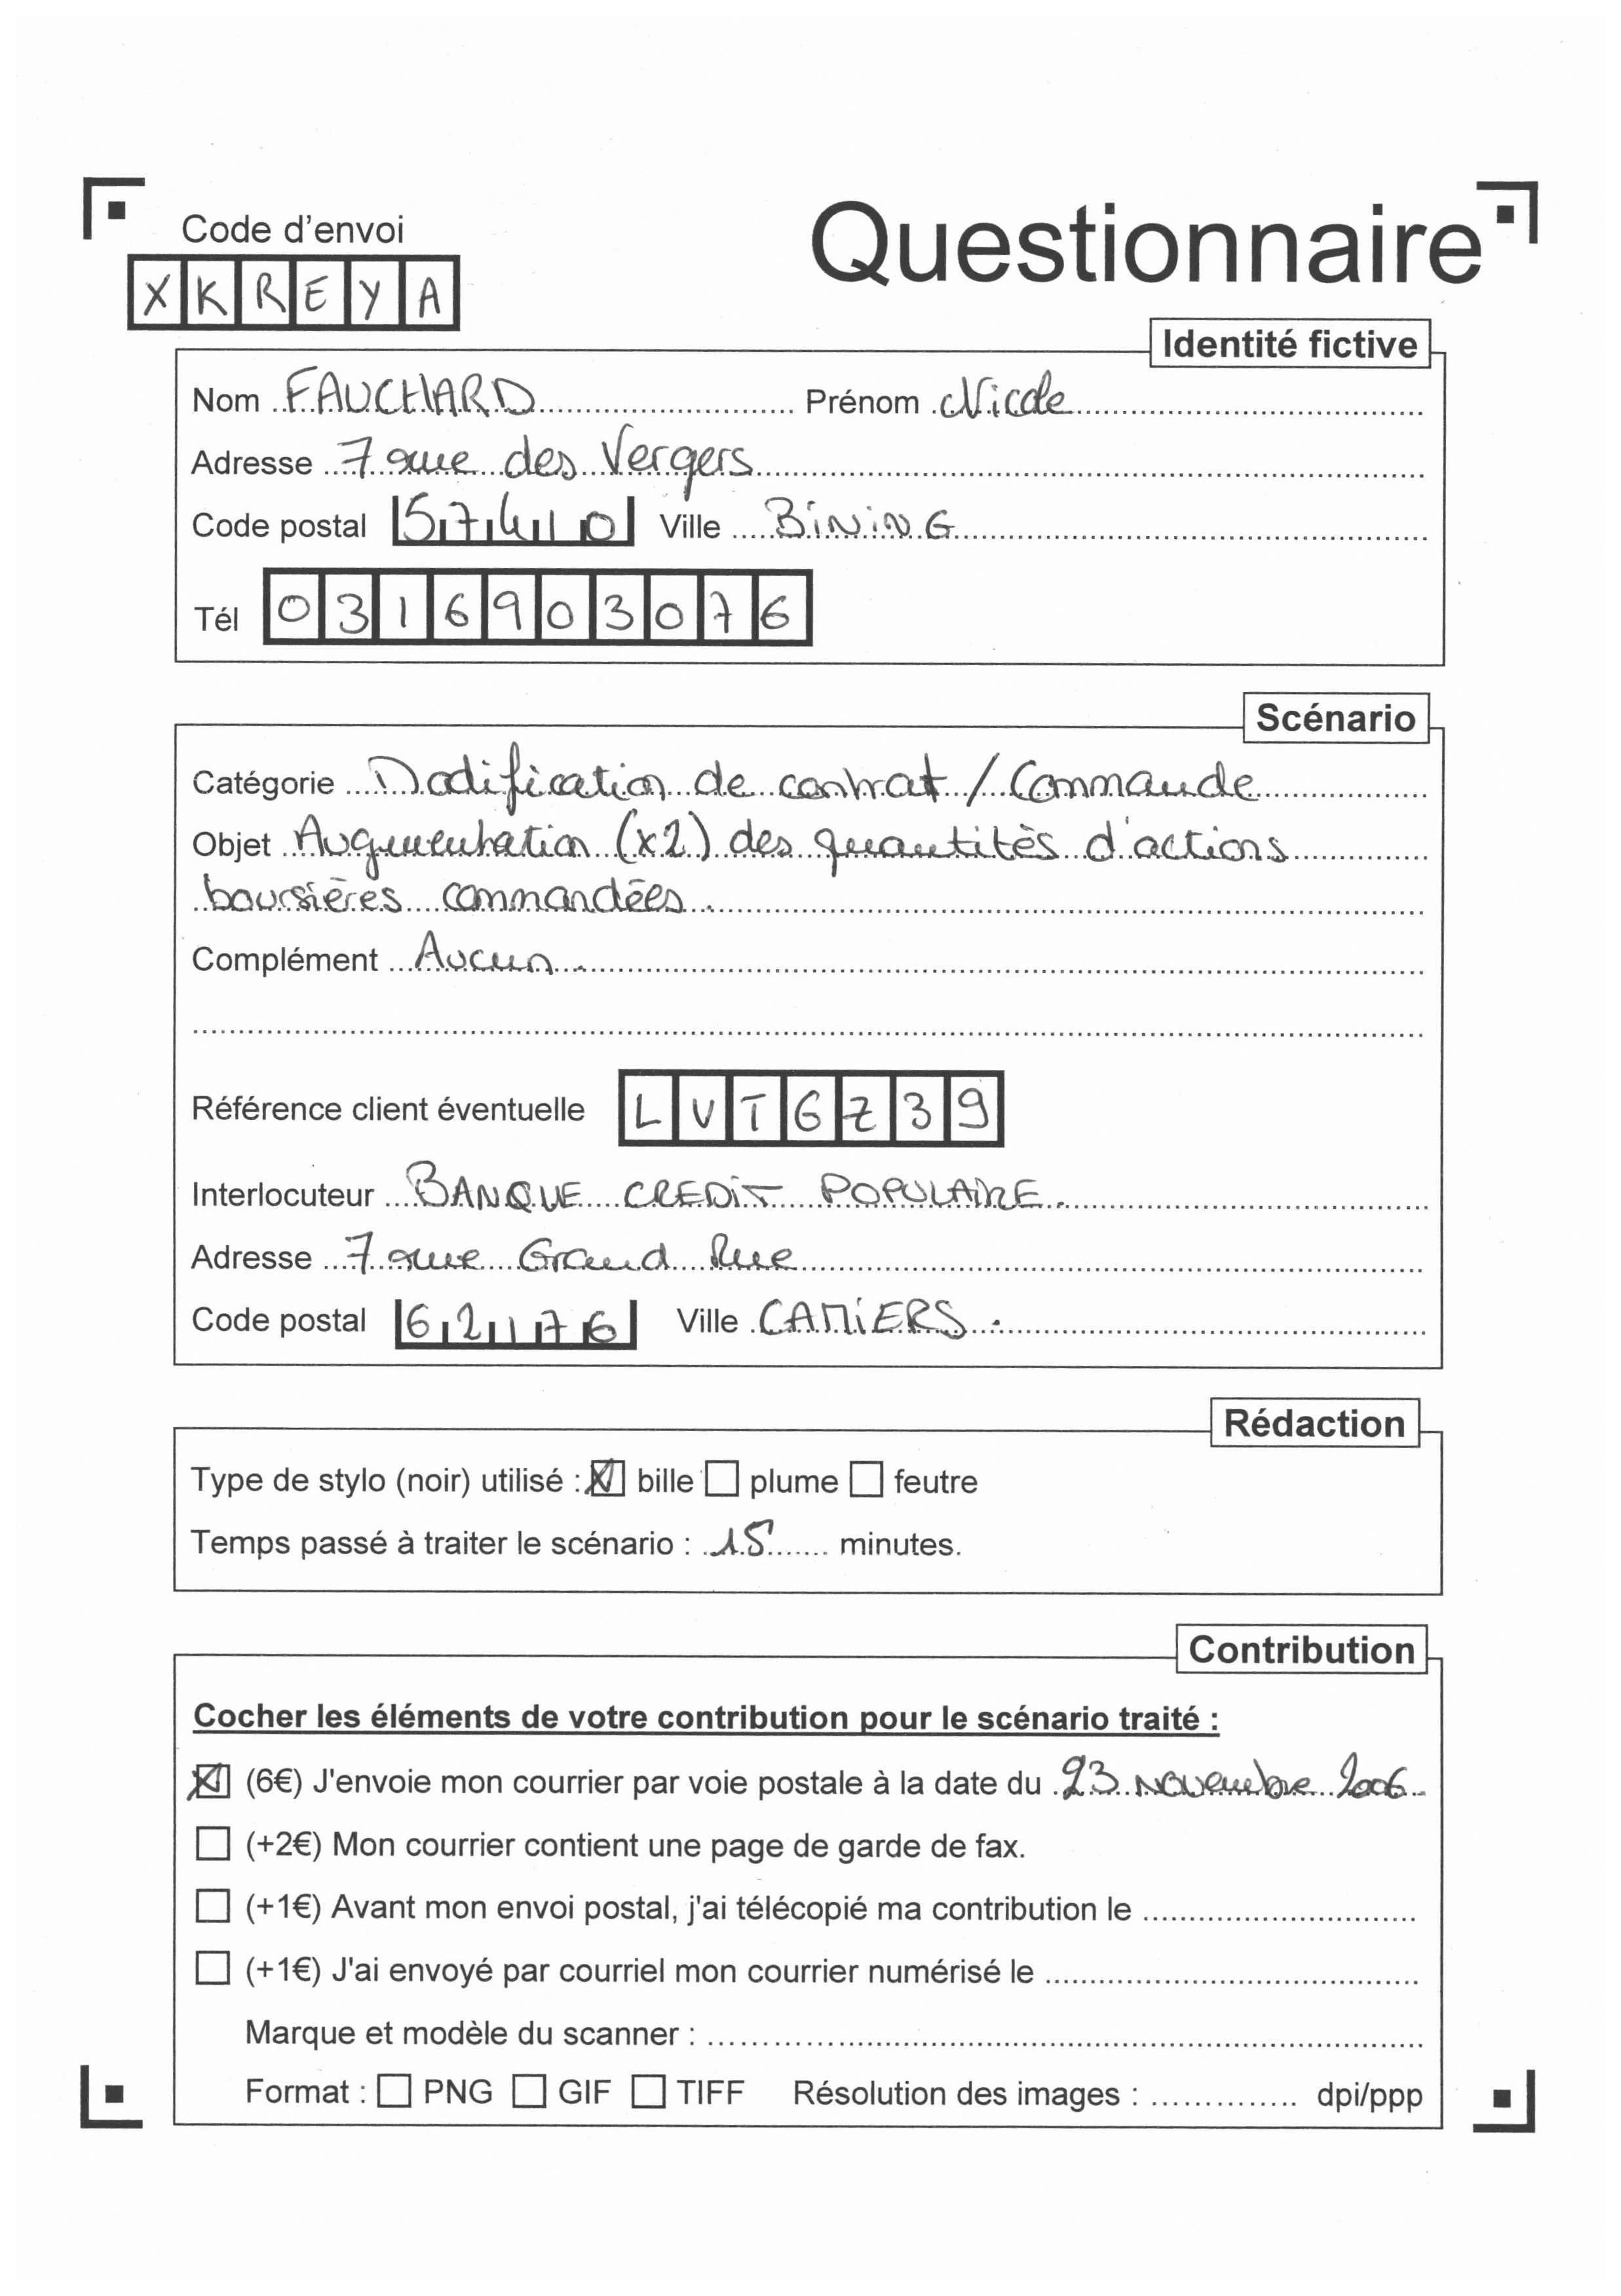 Code d'envoi
Questionnaire
XKREYA
Identité fictive
Nom FAUCHARD Prénom Nicole
Adresse 7 rue des Vergers
Code postal 57410 Ville BiNiNG
Tél 0316903076
Scénario
Catégorie Modification de contrat / Commande
Objet Augmentation (x2) des quantités d'actions
boursières commandées.
Complément Aucun.
Référence client éventuelle LVTGZ39
Interlocuteur BANQUE CREDiT POPULAiRE.
Adresse 7 rue Grand Rue
Code postal 62176 Ville CAMiERS.
Rédaction
Type de stylo (noir) utilisé : ☒ bille ☐ plume ☐ feutre
Temps passé à traiter le scénario : 15 minutes.
Contribution
Cocher les éléments de votre contribution pour le scénario traité :
☒ (6€) J'envoie mon courrier par voie postale à la date du 23 novembre 2006
☐ (+2€) Mon courrier contient une page de garde de fax.
☐ (+1€) Avant mon envoi postal, j'ai télécopié ma contribution le
☐ (+1€) J'ai envoyé par courriel mon courrier numérisé le
Marque et modèle du scanner :
Format : ☐ PNG ☐ GIF ☐ TIFF Résolution des images : dpi/ppp